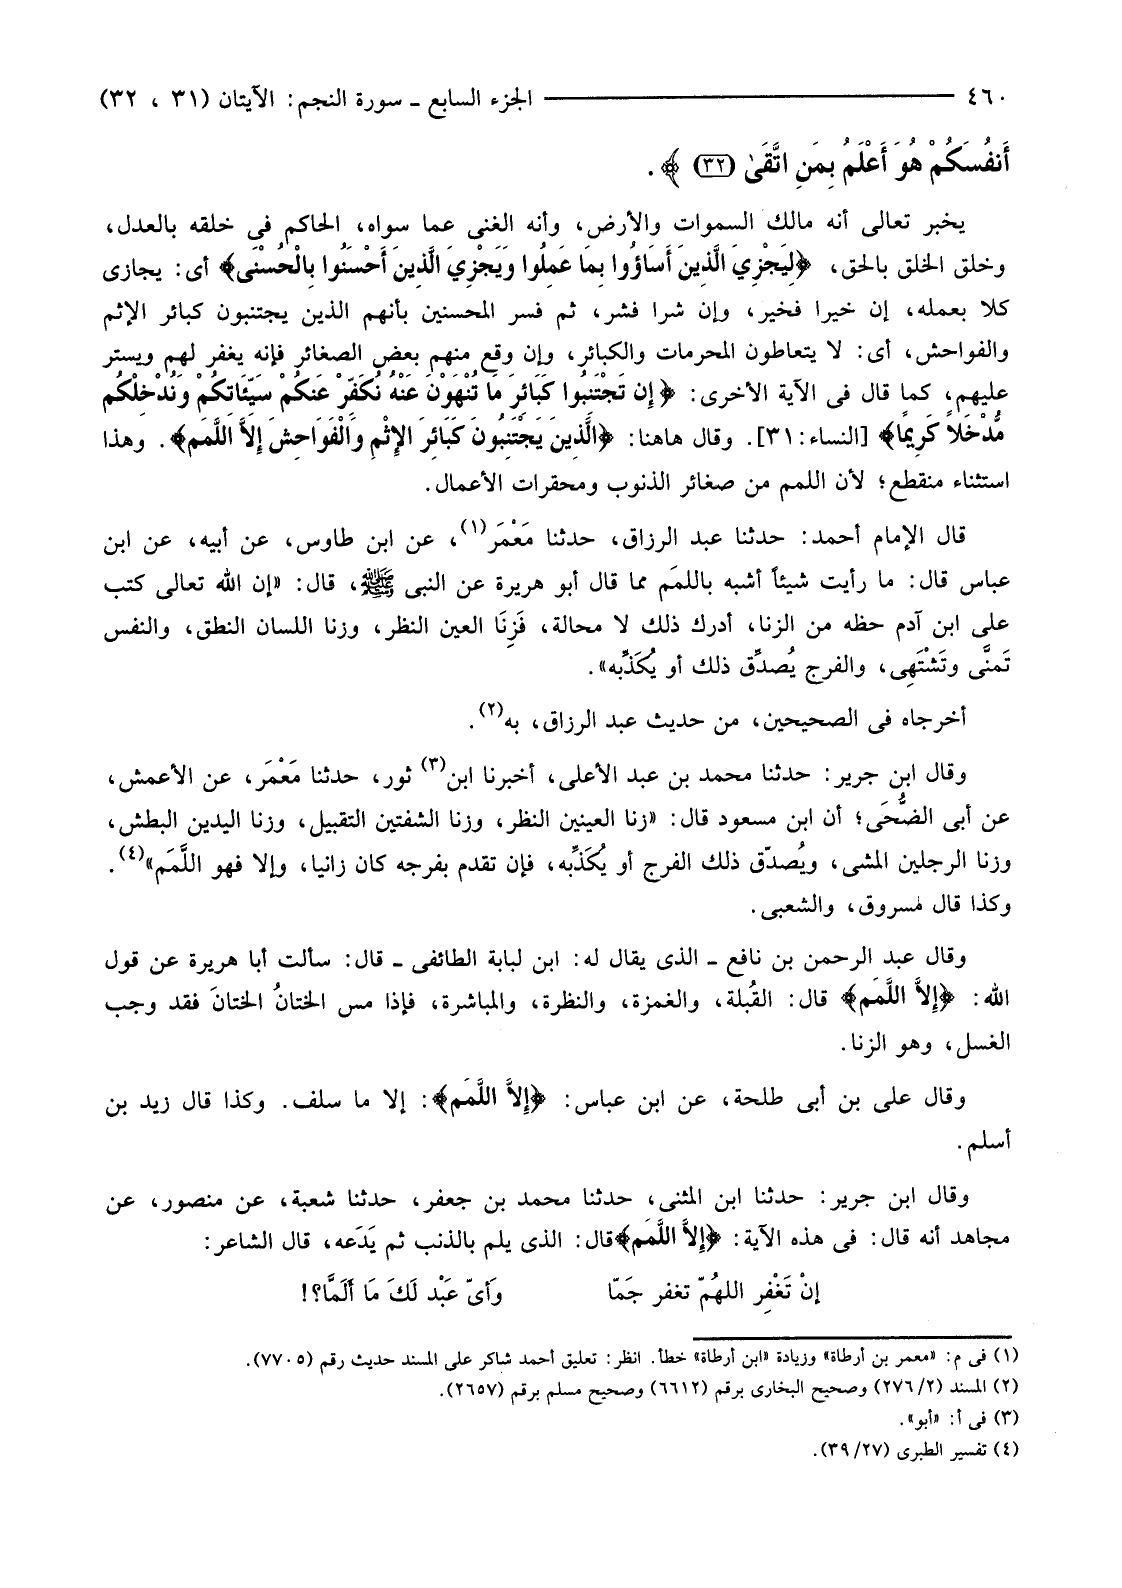 ٤٦٠ الجزء السابع ـ سورة النجم: الآيتان (٣١ ، ٣٢)
أَنفُسَكُمْ هُوَ أَعْلَمُ بِمَنِ اتَّقَىٰ (٣٢) ﴾ .
يخبر تعالى أنه مالك السموات والأرض، وأنه الغنى عما سواه، الحاكم فى خلقه بالعدل،
وخلق الخلق بالحق، ﴿لِيَجْزِيَ الَّذِينَ أَسَاؤُوا بِمَا عَمِلُوا وَيَجْزِيَ الَّذِينَ أَحْسَنُوا بِالْحُسْنَى﴾ أى: يجازى
كلا بعمله، إن خيرا فخير، وإن شرا فشر، ثم فسر المحسنين بأنهم الذين يجتنبون كبائر الإثم
والفواحش، أى: لا يتعاطون المحرمات والكبائر، وإن وقع منهم بعض الصغائر فإنه يغفر لهم ويستر
عليهم، كما قال فى الآية الأخرى: ﴿إِن تَجْتَنِبُوا كَبَائِرَ مَا تُنْهَوْنَ عَنْهُ نُكَفِّرْ عَنكُمْ سَيِّئَاتِكُمْ وَنُدْخِلْكُم
مُّدْخَلاً كَرِيمًا﴾ [النساء: ٣١]. وقال هاهنا: ﴿الَّذِينَ يَجْتَنِبُونَ كَبَائِرَ الإِثْمِ وَالْفَوَاحِشَ إِلاَّ اللَّمَم﴾. وهذا
استثناء منقطع؛ لأن اللمم من صغائر الذنوب ومحقرات الأعمال.
قال الإمام أحمد: حدثنا عبد الرزاق، حدثنا مَعْمَر(١)، عن ابن طاوس، عن أبيه، عن ابن
عباس قال: ما رأيت شيئاً أشبه باللمَم مما قال أبو هريرة عن النبى ﷺ، قال: «إن الله تعالى كتب
على ابن آدم حظه من الزنا، أدرك ذلك لا محالة، فَزِنَا العين النظر، وزنا اللسان النطق، والنفس
تَمنَّى وتَشْتَهِى، والفرج يُصدِّق ذلك أو يُكَذِّبه».
أخرجاه فى الصحيحين، من حديث عبد الرزاق، به(٢).
وقال ابن جرير: حدثنا محمد بن عبد الأعلى، أخبرنا ابن(٣) ثور، حدثنا مَعْمَر، عن الأعمش،
عن أبى الضُّحَى؛ أن ابن مسعود قال: «زنا العينين النظر، وزنا الشفتين التقبيل، وزنا اليدين البطش،
وزنا الرجلين المشى، ويُصدّق ذلك الفرج أو يُكَذِّبه، فإن تقدم بفرجه كان زانيا، وإلا فهو اللَّمَم»(٤).
وكذا قال مسروق، والشعبى.
وقال عبد الرحمن بن نافع ـ الذى يقال له: ابن لبابة الطائفى ـ قال: سألت أبا هريرة عن قول
الله: ﴿إِلاَّ اللَّمَم﴾ قال: القُبلة، والغمزة، والنظرة، والمباشرة، فإذا مس الختانُ الختانَ فقد وجب
الغسل، وهو الزنا.
وقال على بن أبى طلحة، عن ابن عباس: ﴿إِلاَّ اللَّمَم﴾: إلا ما سلف. وكذا قال زيد بن
أسلم.
وقال ابن جرير: حدثنا ابن المثنى، حدثنا محمد بن جعفر، حدثنا شعبة، عن منصور، عن
مجاهد أنه قال: فى هذه الآية: ﴿إِلاَّ اللَّمَم﴾قال: الذى يلم بالذنب ثم يَدَعه، قال الشاعر:
إنْ تَغْفِر اللهُمّ تغفر جَمّا وَأىّ عَبْد لَكَ مَا أَلَمَّا؟!
(١) فى م: «معمر بن أرطاة» وزيادة «ابن أرطاة» خطأ. انظر: تعليق أحمد شاكر على المسند حديث رقم (٧٧٠٥).
(٢) المسند (٢٧٦/٢) وصحيح البخارى برقم (٦٦١٢) وصحيح مسلم برقم (٢٦٥٧).
(٣) فى أ: «أبو».
(٤) تفسير الطبرى (٣٩/٢٧).